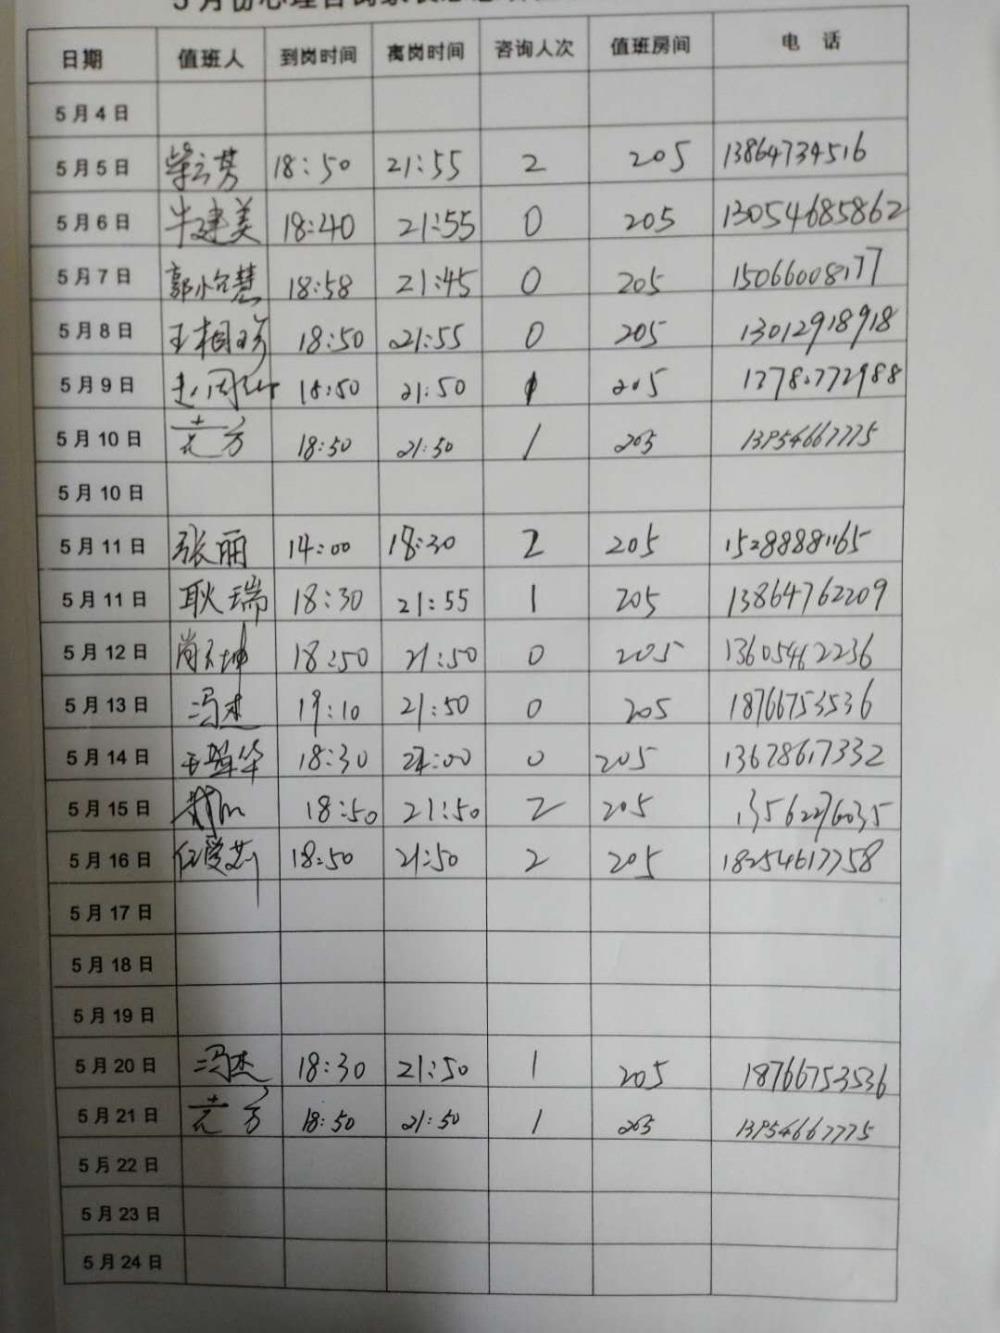 日期 值班人 到岗时间 离岗时间 咨询人次 值班房间 电 话
5月4日
5月5日 柴云芳 18:50 21:55 2 205 13864734516
5月6日 牛建美 18:40 21:55 0 205 13054685862
5月7日 郭怡慧 18:58 21:45 0 205 15066008177
5月8日 王相玲 18:50 21:55 0 205 13012918918
5月9日 18:50 21:50 1 205
5月10日 方 18:50 21:50 1 205 13954667775
5月10日
5月11日 张丽 14:00 18:30 2 205 15288881165
5月11日 耿瑞 18:30 21:55 1 205 13864762209
5月12日 18:50 21:50 0 205 13605462236
5月13日 冯杰 19:10 21:50 0 205 18766753536
5月14日 18:30 0 205 13678617332
5月15日 18:50 21:50 2 205 13562276035
5月16日 18:50 21:50 2 205 18254617758
5月17日
5月18日
5月19日
5月20日 冯杰 18:30 21:50 1 205 18766753536
5月21日 方 18:50 21:50 1 205 13954667775
5月22日
5月23日
5月24日